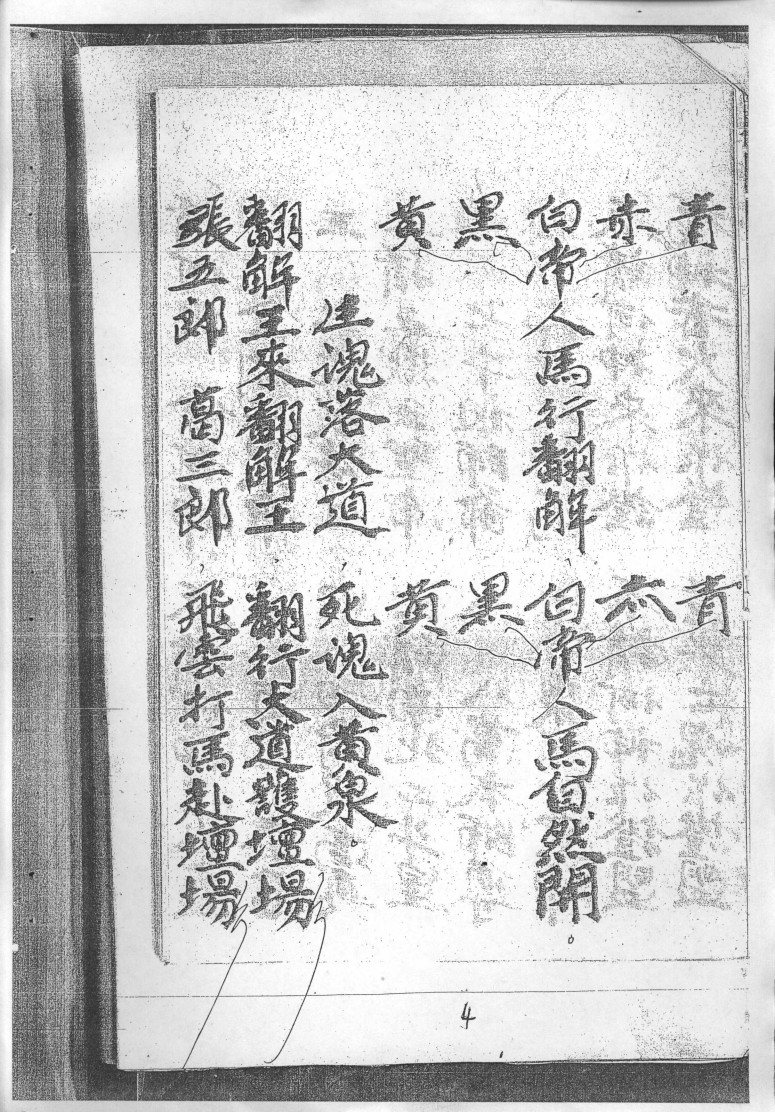 青 青
赤 赤
白帝人馬行翻解 白帝人馬自然開。
黑 黑
黄 黄
生魂落大道 死魂入黄泉。
翻解王來翻解王 翻行大道護壇場
張五郎 葛三郎 飛雲打馬赴壇場
4